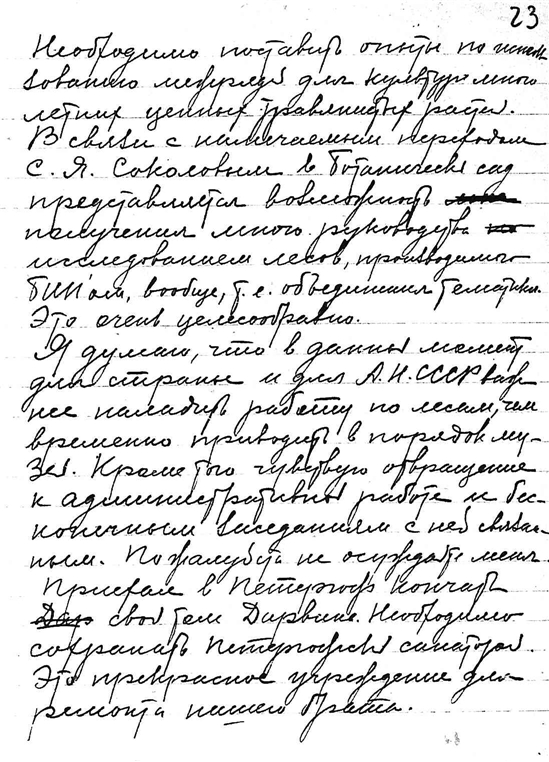 23
Необходимо поставить опыты по исполь
зованию междурядий для культуры много
летних ценных травянистых расте.
В связи с намечаемым переходом
С. Я. Соколовым в Ботанический сад
представляется возможность
получения много руководства
исследованием лесов, производимого
БИН'ом, вообще, т. е. объединения тематики.
Это очень целесообразно.
Я думаю, что в данный момент
для страны и для А.Н.СССР важ
нее наладить работу по лесам, чем
временно приводить в порядок му-
зей. Кроме того чувствую отвращение
к административной работе и бес-
конечным заседаниям с ней связан-
ным. Пожалуйста не осуждайте меня.
Приехал в Петергоф кончать
свой том Дарвина. Необходимо
сохранить Петергофский санаторий.
Это прекрасное учреждение для
ремонта нашего брата.